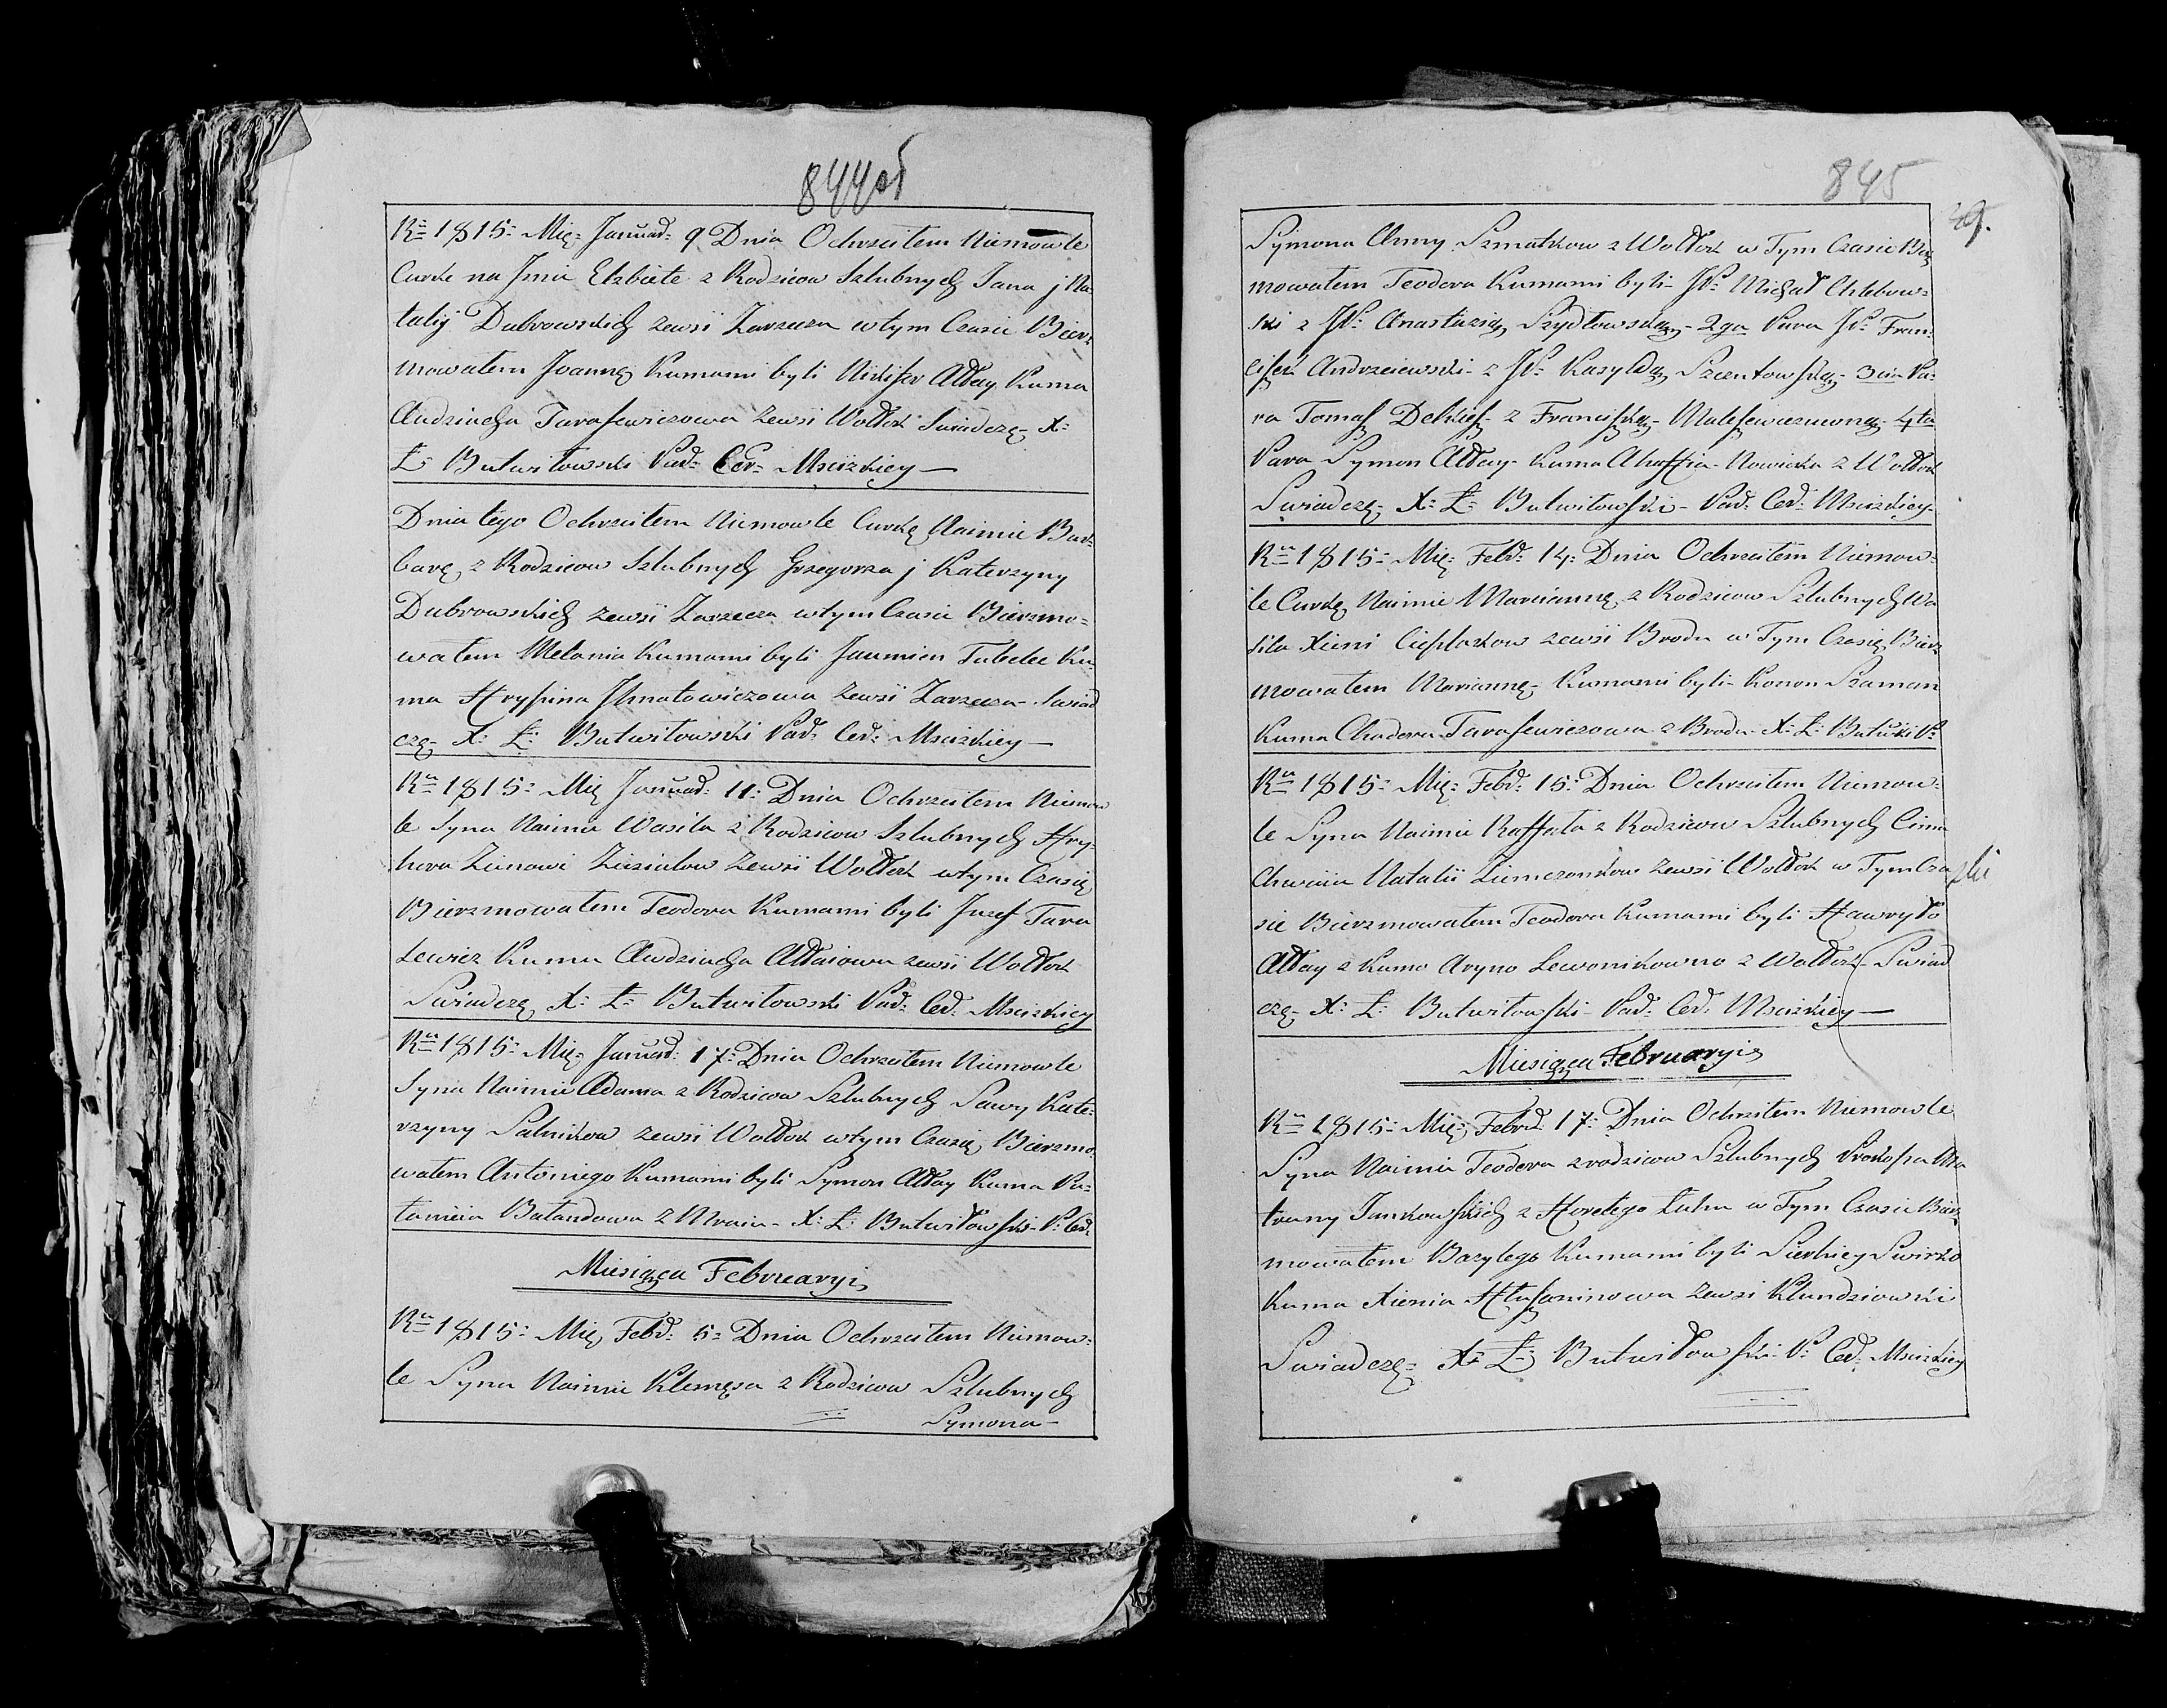 844об
Rᵘ 1815 Mię= Januar= 9 Dnia Ochrzciłem Niemowle
Curke na Jmie Elzbiete z Rodzicow Szlubnych Jana j Na=
talij Dubrowskich zewsi Zarzecza wtym Czasie Bierz=
mowałem Joannę Kumami byli Nikifer Ałday Kuma
Audziucha Tarasewiczowa zewsi Wołłok Swiadczę= X=
Ł= Butwiłowski Par= Cer= Mscizkiey—
Dnia tego Ochrzciłem Niemowle Curkę Naimie Bar=
barę z Rodzicow Szlubnych Grzegorza j Katerzyny
Dubrowskich zewsi Zarzecza wtym Czasie Bierzmo=
wałem Melania Kumami byli Jaumien Tubelec Ku=
ma Hrypina Jhnatowiczowa zewsi Zarzecza= Swiad
czę= X= Ł= Butwiłowski Par= Cer= Mscizkiey—
Rᵘ 1815= Mię Januar= 11= Dnia Ochrzciłem Niemow
le Syna Naimie Wasila z Rodzicow Szlubnych Hry=
hora Zienowi Ziuziulow zewsi Wołłok wtym Czasię
Bierzmowałem Teodora Kumami byli Juzef Tara
sewicz Kuma Audziucha Ałdaiowa zewsi Wołłok
Swiadczę X= Ł= Butwiłowski Par= Cer= Mscizkiey
Rᵘ 1815= Mię= Januar= 17= Dnia Ochrzciłem Niemowle
Syna Naimie Adama z Rodzicow Szlubnych Sawy Kate=
rzyny Salnikow zewsi Wołłok wtym Czasię Bierzmo=
wałem Antoniego Kumami byli Symon Ałday Kuma Pa=
łanieia Bałandowa z Mraia= X= Ł= Butwiłowski= P= Cer=
Miesiąca Februaryi
Rᵘ 1815= Mię Febr= 5= Dnia Ochrzciłem Niemow=
le Syna Naimie Klemęsa z Rodzicow Szlubnych
Symona—
845
29.
Symona Anny Szmatkow z Wołłok w Tym Czasie Bierz
mowałem Teodora Kumami byli= JP= Michał Chlebow=
ski z JP= Anastazią Szydłowską= 2ga Para JP= Fran=
ciszek Andrzeiewski= z JP= Kasyldą Szientowską= 3cia Pa=
ra Tomasz Delkiesz= z Franciszką= Maleszewiczuwną= 4ta
Para Symon Ałday= Kuma Ahaffia= Nowicka z Wołłok
Swiadczę= X= Ł= Butwiłowski= Par= Cer= Mscizkiey=
Rᵘ 1815= Mię= Febr= 14= Dnia Ochrzciłem Niemow=
le Curkę Naimie Mariannę z Rodzicow Szlubnych Wa
sila Xieni Cieplakow zewsi Brodu w Tym Czasię Bierz
mowałem Mariannę= Kumami byli= Konon Szaman
Kuma Chadora Tarasewiczowa z Brodu= X= Ł= Butwiłki P=
Rᵘ 1815= Mię= Febr= 15= Dnia Ochrzciłem Niemow=
le Syna Naimie Raffała z Rodzicow Szlubnych Cimo
Chwieia Natalii Ziemczonkow zewsi Wołłok w Tym Cza
sie Bierzmowałem Teodora Kumami byli Hawryło
Ałday z Kumo Aryno Lewonikowno z Wołłok= Swiad
czę= X= Ł= Butwiłowski= Par= Cer= Mscizkiey—
Miesiąca Februaryi
Rᵘ 1815= Mię= Febr= 17= Dnia Ochrzciłem Niemowle
Syna Naimie Teodora z rodzicow Szlubnych Prokopa Ma
trony Jankowskich z Horełego Łuhu w Tym Czasie Bierz
mowałem Bazylego Kumami byli Sierhiey Swirko
Kuma Xienia Hłuszaninowa zewsi Klundziowki
Swiadczę= X= Ł= Butwiłowski= P= Cer= Mscizkiey